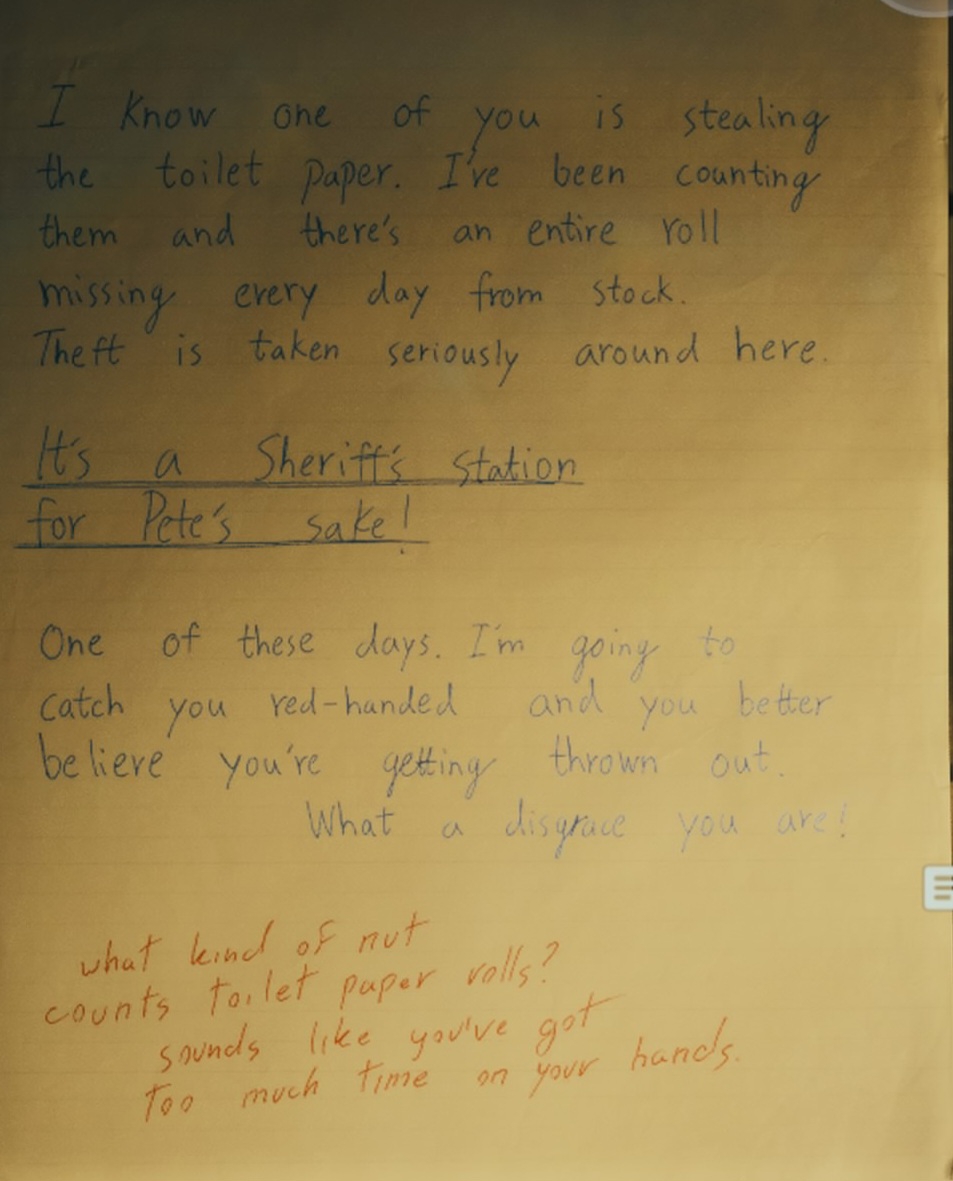 I know one of you is stealing
the toilet paper. I've been counting
them and there's an entire roll
missing every day from stock.
Theft is taken seriously around here.
It's a Sheriff's station
for Pete's sake!
One of these days. I'm going to
catch you red-handed and you better
believe you're getting thrown out.
What a disgrace you are!
what kind of nut
counts toilet paper rolls?
sounds like you've got
too much time on your hands.